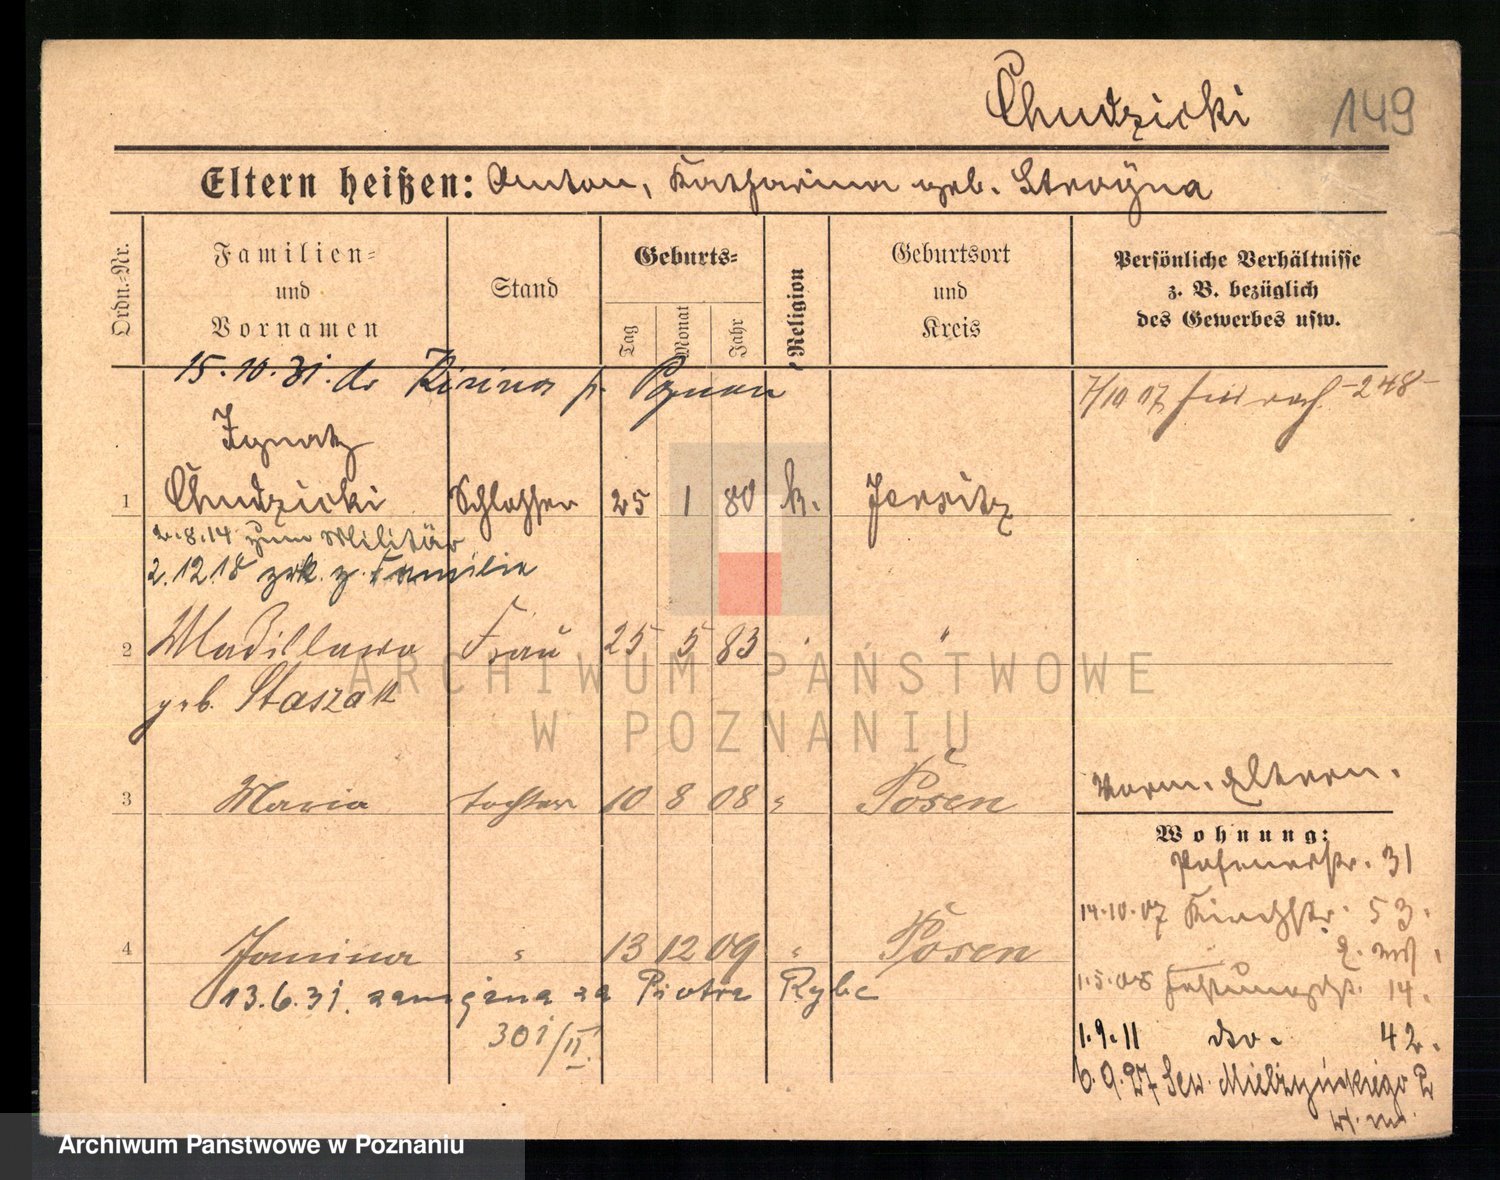 Chudzicki 149
Eltern heißen: Anton, Katharina geb. Stroÿna
Ordn.-Nr.
Familien-
und
Vornamen
Stand
Geburts-
Tag
Monat
Jahr
Religion
Geburtsort
und
Kreis
Persönliche Verhältnisse
z. B. bezüglich
des Gewerbes usw.
15.10.31. do p. Poznan
7/10 07 -248-
Ignatz
1 Chudzicki Schlosser 25 1 80 k. Jersitz
2.8.14 zum Militär
2.12.18 zrk. z. Familie
2 Wladislawa Frau 25 5 83 " "
geb. Staszak
3 Maria Tochter 10 8 08 " Posen
Vorm. Eltern.
Wohnung:
Posenerstr. 31
14.10.07 Kirchstr. 53.
4 Janina " 13 12 09 " Posen
1.5.08 14.
13.6.31. zamężna za Piotra Rybc
301/II.
1.9.11 do. 42.
6.9.27 Sew. Mielżyńskiego 2
ARCHIWUM PAŃSTWOWE
W POZNANIU
Archiwum Państwowe w Poznaniu